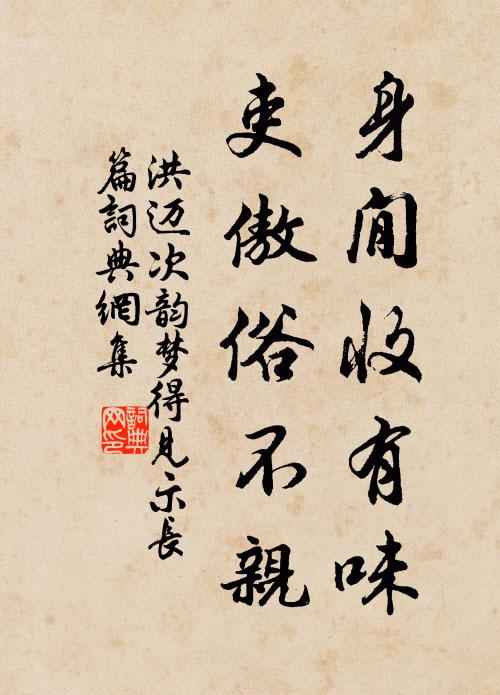 身閒收有味
吏傲俗不親
洪迈次韵梦得见示長
篇詞典網集
詞典
网印